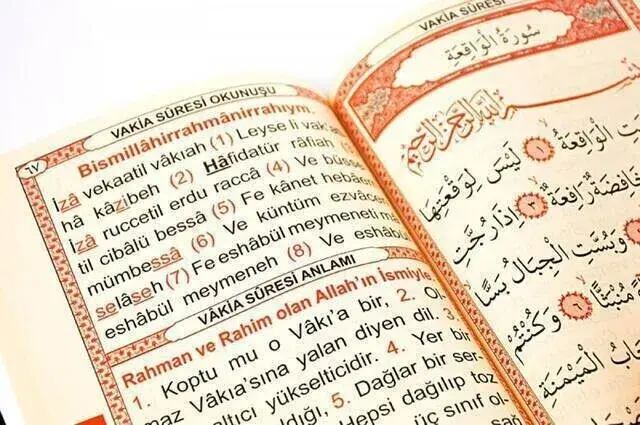 VAKİA SÛRESİ OKUNUŞU
Bismillâhirrahmânirrahıym.
İzâ vekaatil vâkıah (1) Leyse li vak'atihâ
hâ kâzibeh (2) Hâfidatür râfiah
İzâ ruccetil erdu raccâ (4) Ve büsse
til cibâlü bessâ (5) Fe kânet hebâen
mümbessâ (6) Ve küntüm ezvâcen
selâseh (7) Fe eshâbül meymeneti mâ
eshâbül meymeneh (8) Ve eshâbü
VÂKİA SÛRESİ ANLAMI
Rahman ve Rahim olan Allah'ın İsmiyle
1. Koptu mu o Vâkı'a bir, 2. Ol-
maz Vâkıa'sına yalan diyen dil. 3.
altıcı yükselticidir. 4. Yer bir
ldığı, 5. Dağlar bir ser-
Hepsi dağılıp toz
üç sınıf ol-
sağ
VAKİA SÛRESİ
سُورَةُ الْوَاقِعَةِ
بِسْمِ اللّٰهِ الرَّحْمٰنِ الرَّحِيمِ
الْوَاقِعَةُ ۙ ١ لَيْسَ لِوَقْعَتِهَا
خَافِضَةٌ رَافِعَةٌ ۙ ٣ اِذَا رُجَّتِ
وَبُسَّتِ الْجِبَالُ بَسًّا
مُنْبَثًّا ۙ ٦ وَكُنْتُمْ
الْمَيْمَنَةِ